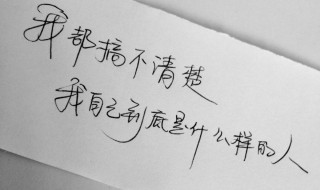 我都搞不清楚
我自己到底是什么样的人